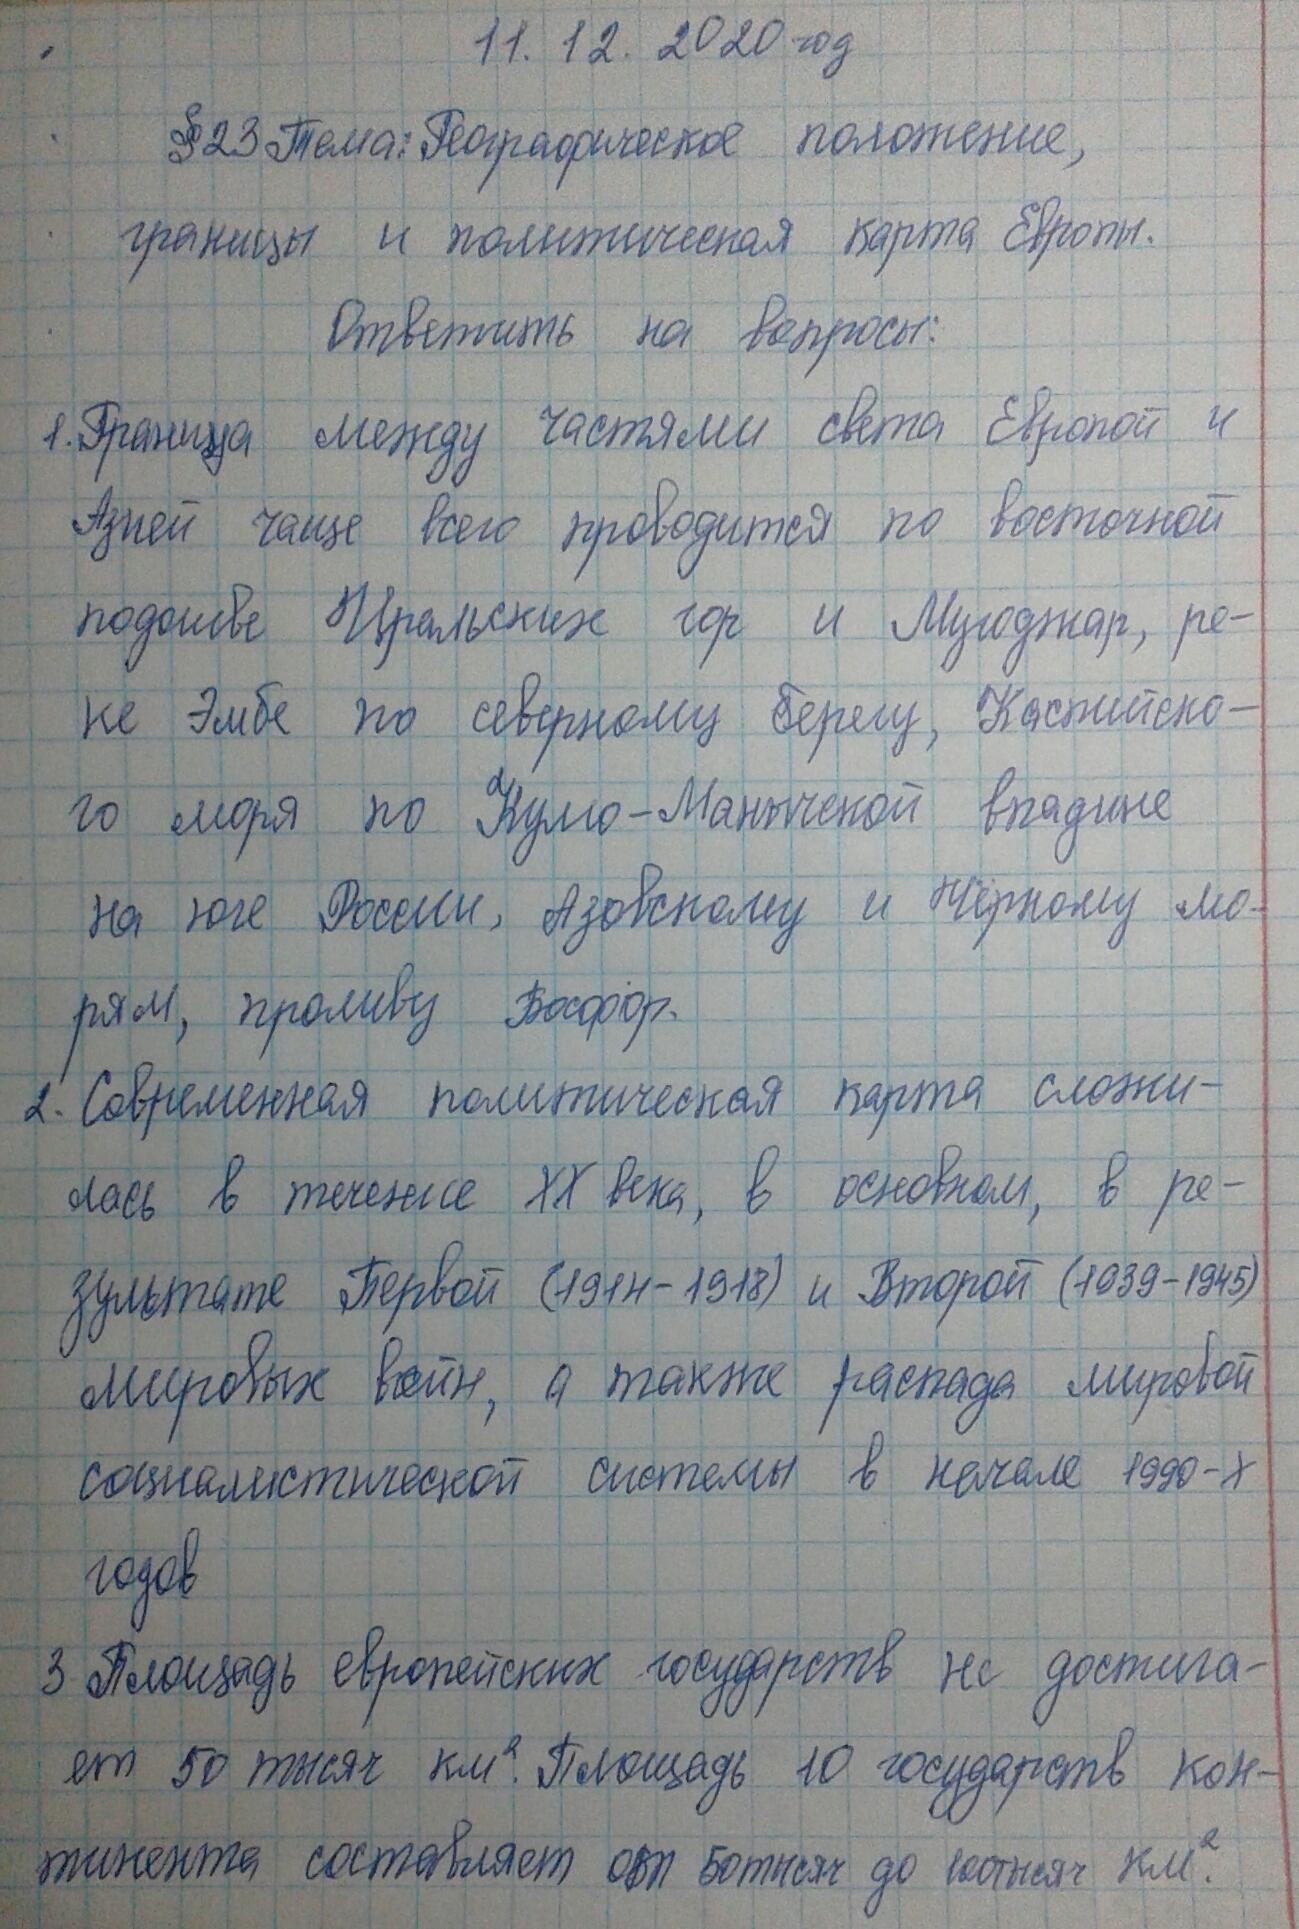 11. 12. 2020 год
§ 23 Тема: Географическое положение,
границы и политическая карта Европы.
Ответить на вопросы:
1. Граница между частями света Европой и
Азией чаще всего проводится по восточной
подошве Уральских гор и Мугоджар, ре-
ке Эмбе по северному берегу, Каспийско-
го моря по Кумо-Манычской впадине
на юге России, Азовскому и Чёрному мо-
рям, проливу Босфор.
2. Современная политическая карта сложи-
лась в течение XX века, в основном, в ре-
зультате Первой (1914-1918) и Второй (1939-1945)
мировых войн, а также распада мировой
социалистической системы в начале 1990-х
годов
3 Площадь европейских государств не достига-
ет 50 тысяч км². Площадь 10 государств кон-
тинента составляет от 50 тысяч до 100 тысяч км².